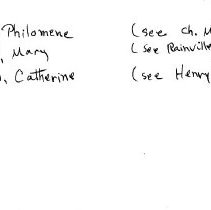 Philomene (see Ch. M
, Mary (see Rainville
, Catherine (see Henry